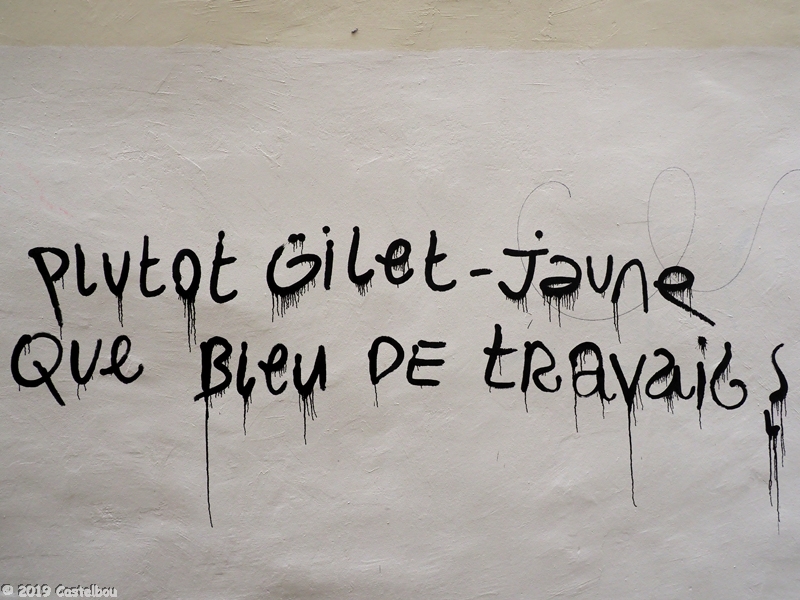 Plutot Gilet-jaune
Que Bleu De travail ?
© 2019 Castelbou